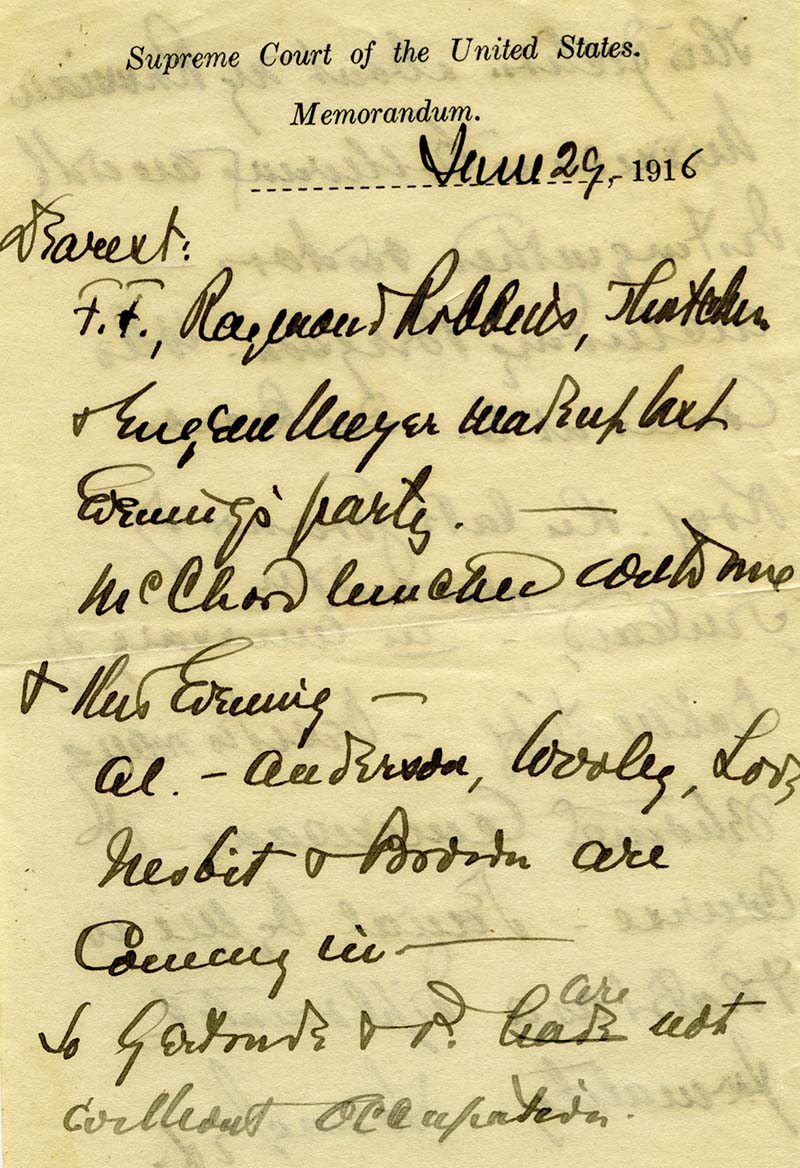 Supreme Court of the United States.
Memorandum.
June 29, 1916
Dearest:
F.F., Raymond Robbins, Thatcher
& Eugene Meyer made up last
Evening's party. —
McChord lunched with me
& this Evening —
Al. – Anderson, Wooley,
Nesbit & Brown are
Coming in —
So Gertrude & P. have are not
without occupation.